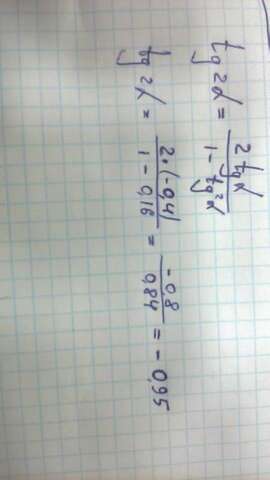 tg 2α = 2 tg α / 1 - tg²α
tg 2α = 2·(-0,4) / 1 - 0,16 = -0,8 / 0,84 = -0,95